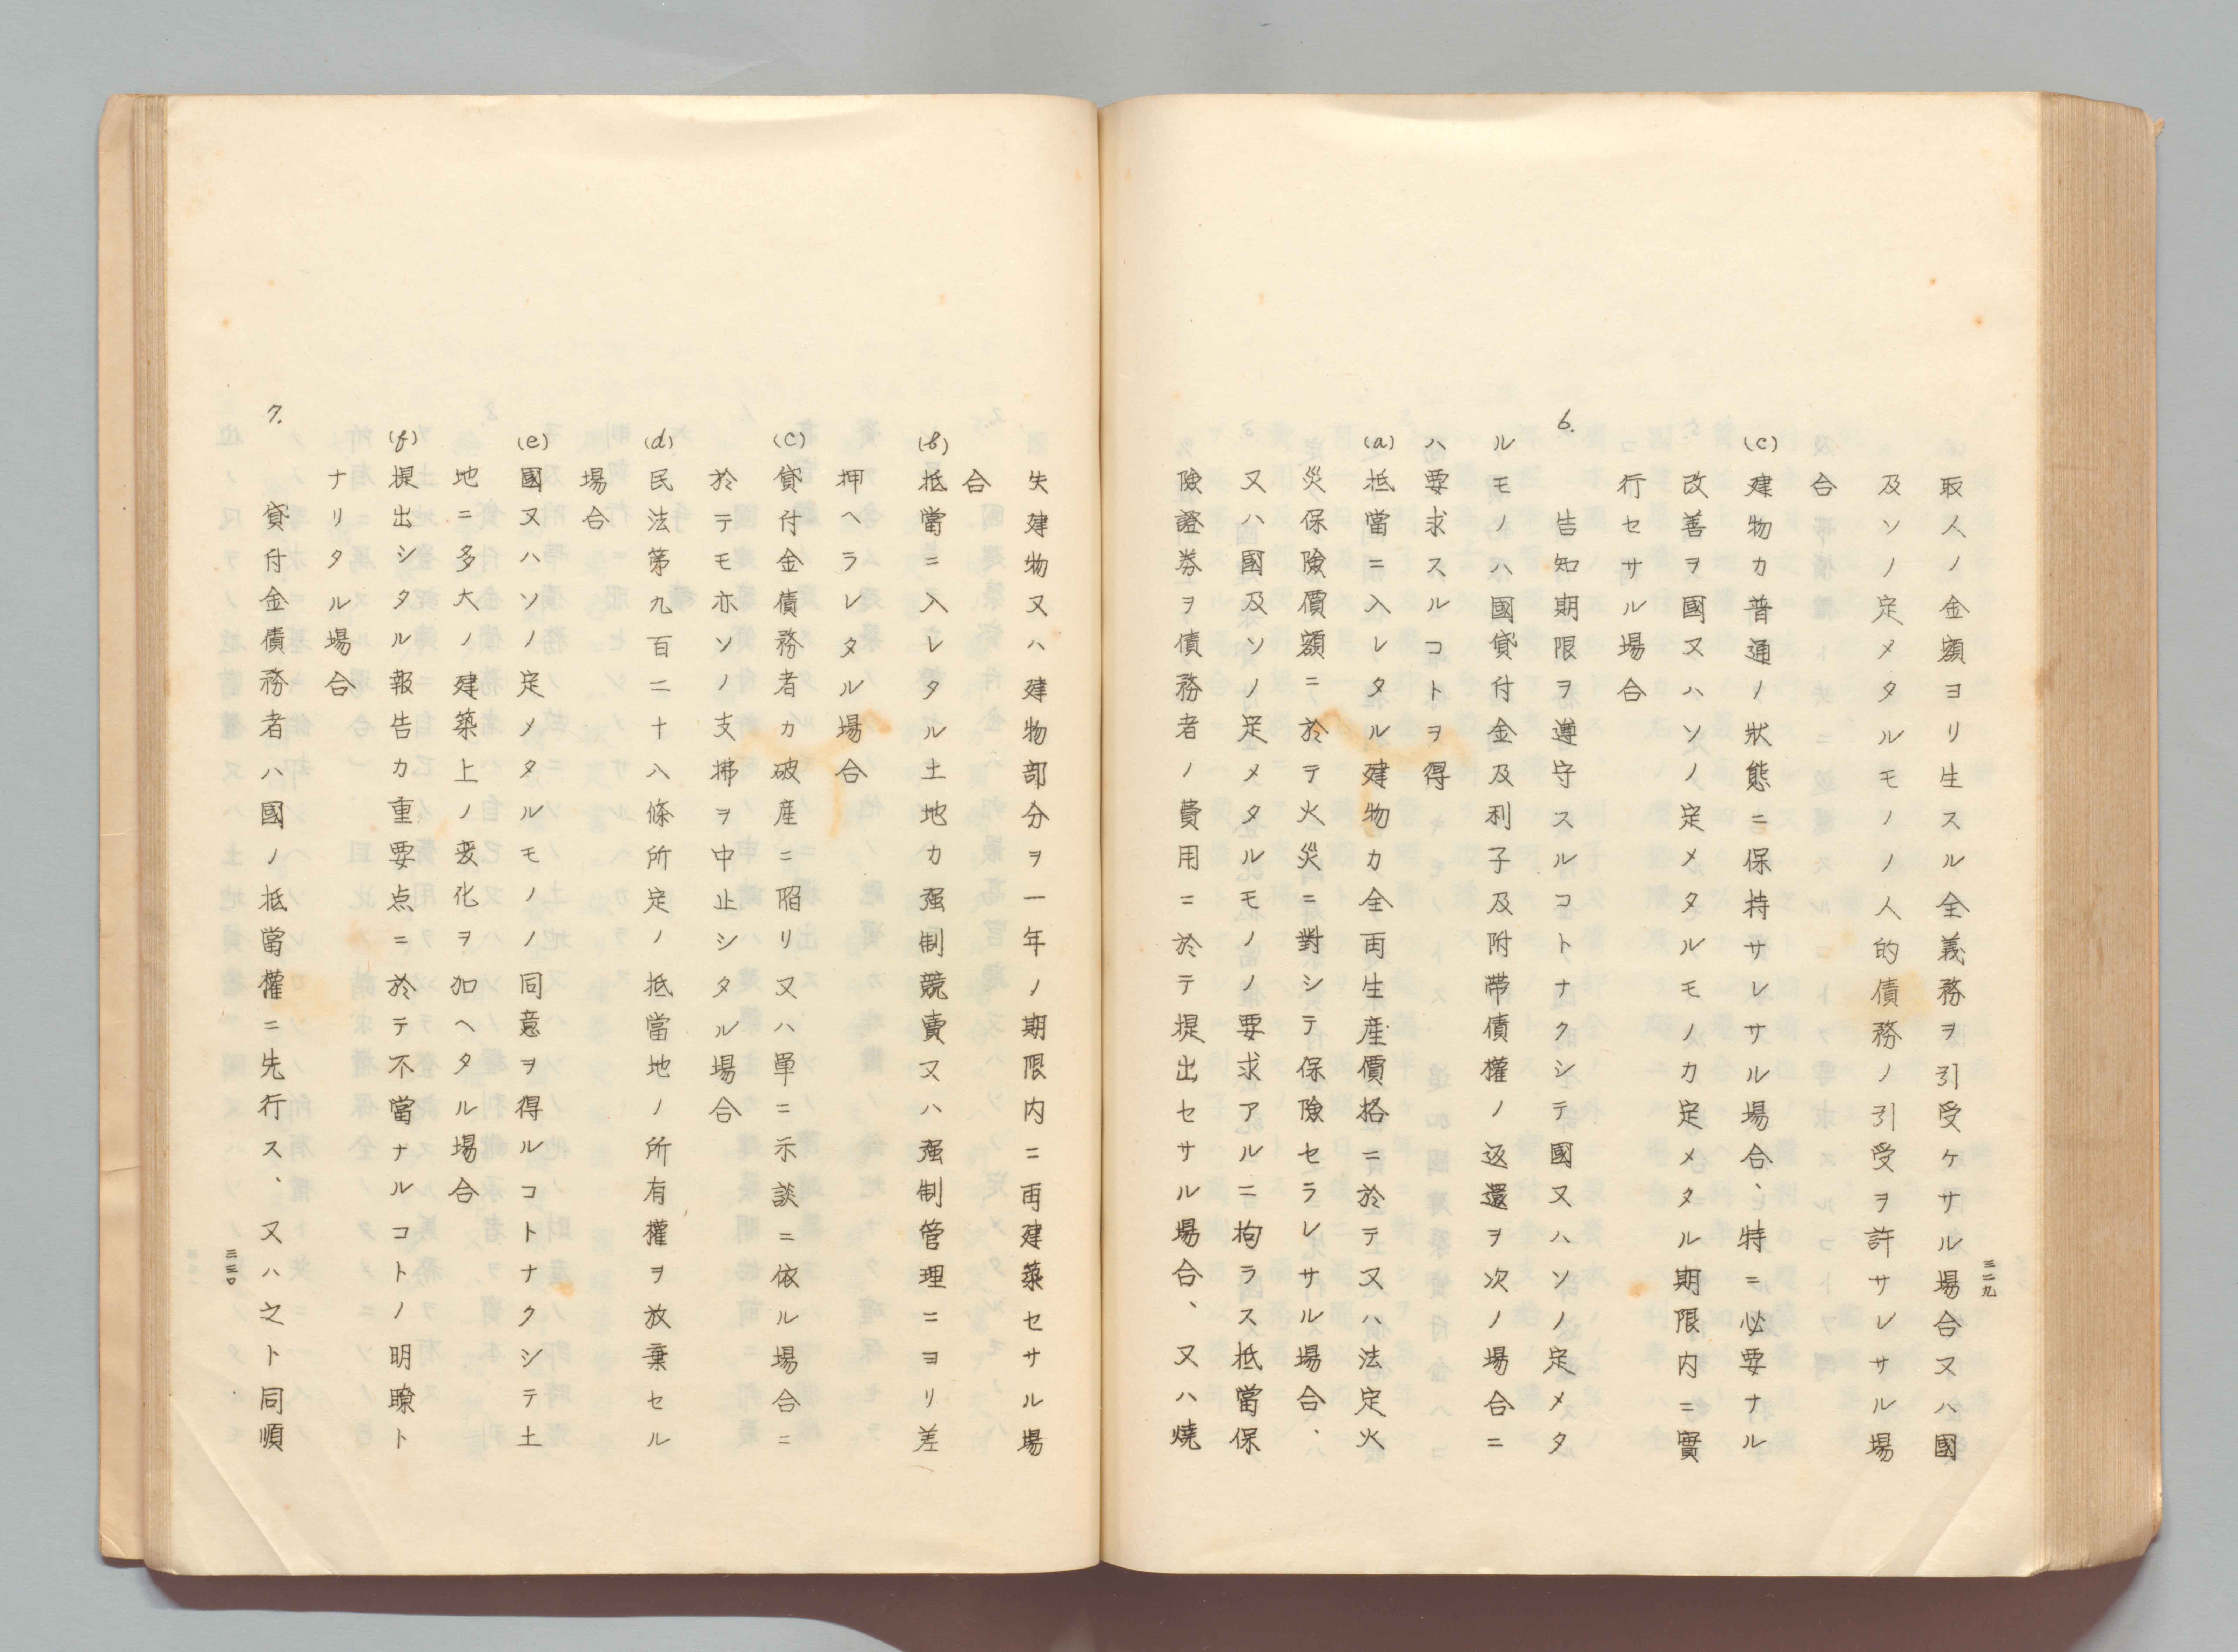 取人ノ金額ヨリ生スル全義務ヲ引受ケサル場合又ハ國
及ソノ定メタルモノノ人的債務ノ引受ヲ許サレサル場
合
(c)建物カ普通ノ狀態ニ保持サレサル場合、特ニ必要ナル
改善ヲ國又ハソノ定メタルモノカ定メタル期限内ニ實
行セサル場合
6.告知期限ヲ遵守スルコトナクシテ國又ハソノ定メタ
ルモノハ國貸付金及利子及附帯債權ノ返還ヲ次ノ場合ニ
ハ要求スルコトヲ得
(a)抵當ニ入レタル建物カ全再生産價格ニ於テ又ハ法定火
災保險價額ニ於テ火災ニ對シテ保險セラレサル場合、
又ハ國及ソノ定メタルモノノ要求アルニ拘ラス抵當保
險證券ヲ債務者ノ費用ニ於テ提出セサル場合、又ハ燒
三二九
失建物又ハ建物部分ヲ一年ノ期限内ニ再建築セサル場
合
(b)抵當ニ入レタル土地カ强制競賣又ハ强制管理ニヨリ差
押ヘラレタル場合
(c)貸付金債務者カ破産ニ陷リ又ハ單ニ示談ニ依ル場合ニ
於テモ亦ソノ支拂ヲ中止シタル場合
(d)民法第九百二十八條所定ノ抵當地ノ所有權ヲ放棄セル
場合
(e)國又ハソノ定メタルモノノ同意ヲ得ルコトナクシテ土
地ニ多大ノ建築上ノ変化ヲ加ヘタル場合
(f)提出シタル報告カ重要点ニ於テ不當ナルコトノ明瞭ト
ナリタル場合
7.貸付金債務者ハ國ノ抵當權ニ先行ス、又ハ之ト同順
三三〇